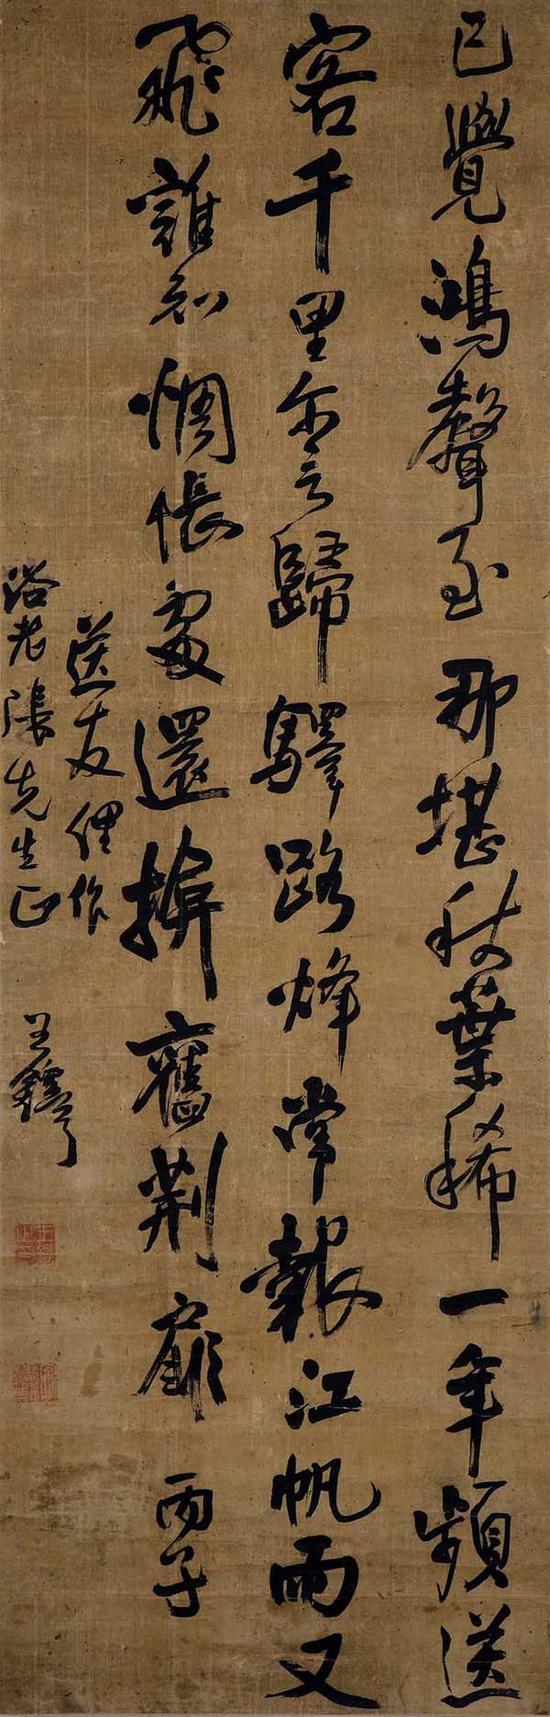 已覺鴻聲至那堪秋葉稀一年頻送
客千里尔言歸驛路烽常報江帆雨又
飛誰知惆悵處還掩舊荆扉丙子
送友俚作
浴老張先生正王鐸